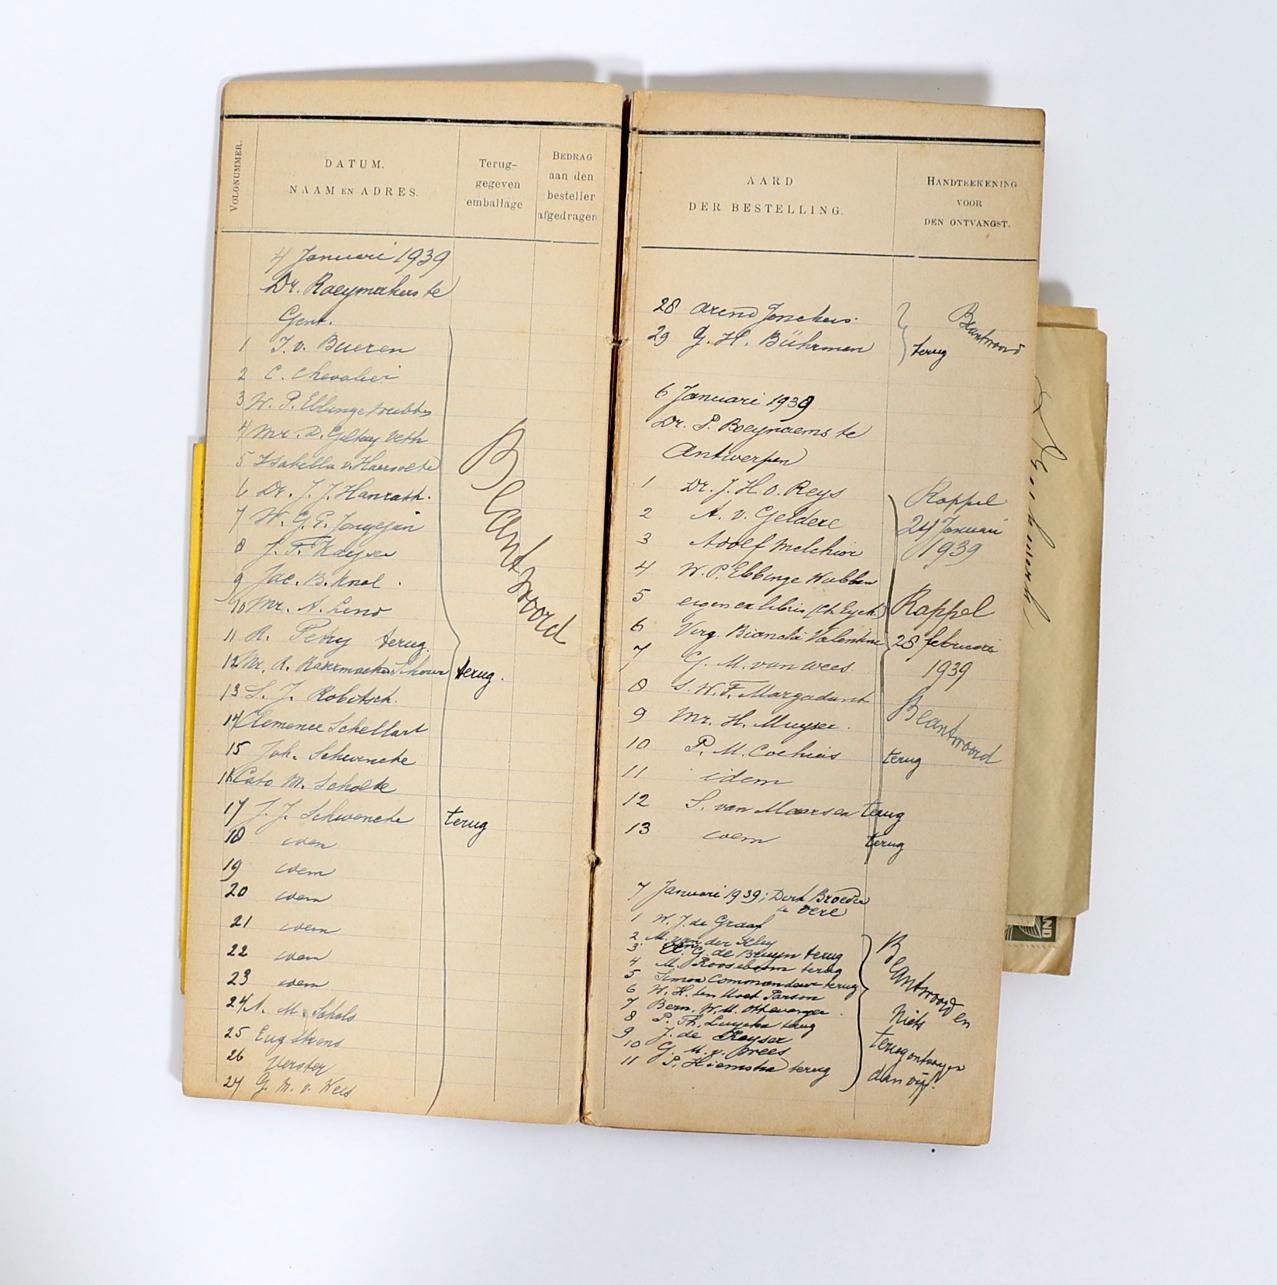 VOLGNUMMER.
DATUM.
NAAM EN ADRES.
Terug-
gegeven
emballage
BEDRAG
aan den
besteller
afgedragen
4 Januari 1939
Dr. Raeymakers te
Gent.
1 J. v. Bueren
2 C. Chevalier
3 W. P. Ebbinge Wubben
4 Mr. Veth
5 Isabella v.
6 Dr. J. J. Hanrath.
7 W. G. F. Jongejan
8 J. F. Kayser
9 Jac. B. Knol.
10 Mr. A. Lend
11 R. Petry terug.
12 Mr. R. terug.
13 S. J. Robitsch.
14 Clemence Schellart
15 Joh. Schwencke
16 Cato M. Scholte
17 J. J. Schwencke terug
18 idem
19 idem
20 idem
21 idem
22 idem
23 idem
24 A. M. Schols
25 Eug Strens
26 Verster
27 G. M. v. Wees
Beantwoord
AARD
DER BESTELLING.
HANDTEEKENING
VOOR
DEN ONTVANGST.
28 Arend Jonckers.
29 G. H. Bührman
terug
Beantwoord
6 Januari 1939
Dr. P. Boeynaems te
Antwerpen
1 Dr. J. H. v. Reys
2 A. v. Geldere
3 Adolf Melchior
4 W. P. Ebbinge Wubben
5 eigen exlibris (Ch. Eyck)
6 Virg. Bianchi Valentine
7 G. M. van Wees
8 S. W. F. Margadant
9 Mr. H. Muyser.
10 P. M. Cochius terug
11 idem
12 S. van Maarsen terug
13 idem terug
Rappel
24 Januari
1939
Rappel
28 februari
1939
Beantwoord
7 Januari 1939; Dirk Broeder
te Vere
1 W. J. de Graaf
2 M. van der
3 G. de Bruyn terug
4 M. Rooseboom terug
5 Simon Commandeur terug
6 W. H. ten Hoet Parson
7 Bern. W. M.
8 P. Th. Luycks terug
9 J. de Keyser
10 G. M. v. Wees
11 P. Hiemstra terug
Beantwoord en
Niets
terug ontvangen
dan vijf.